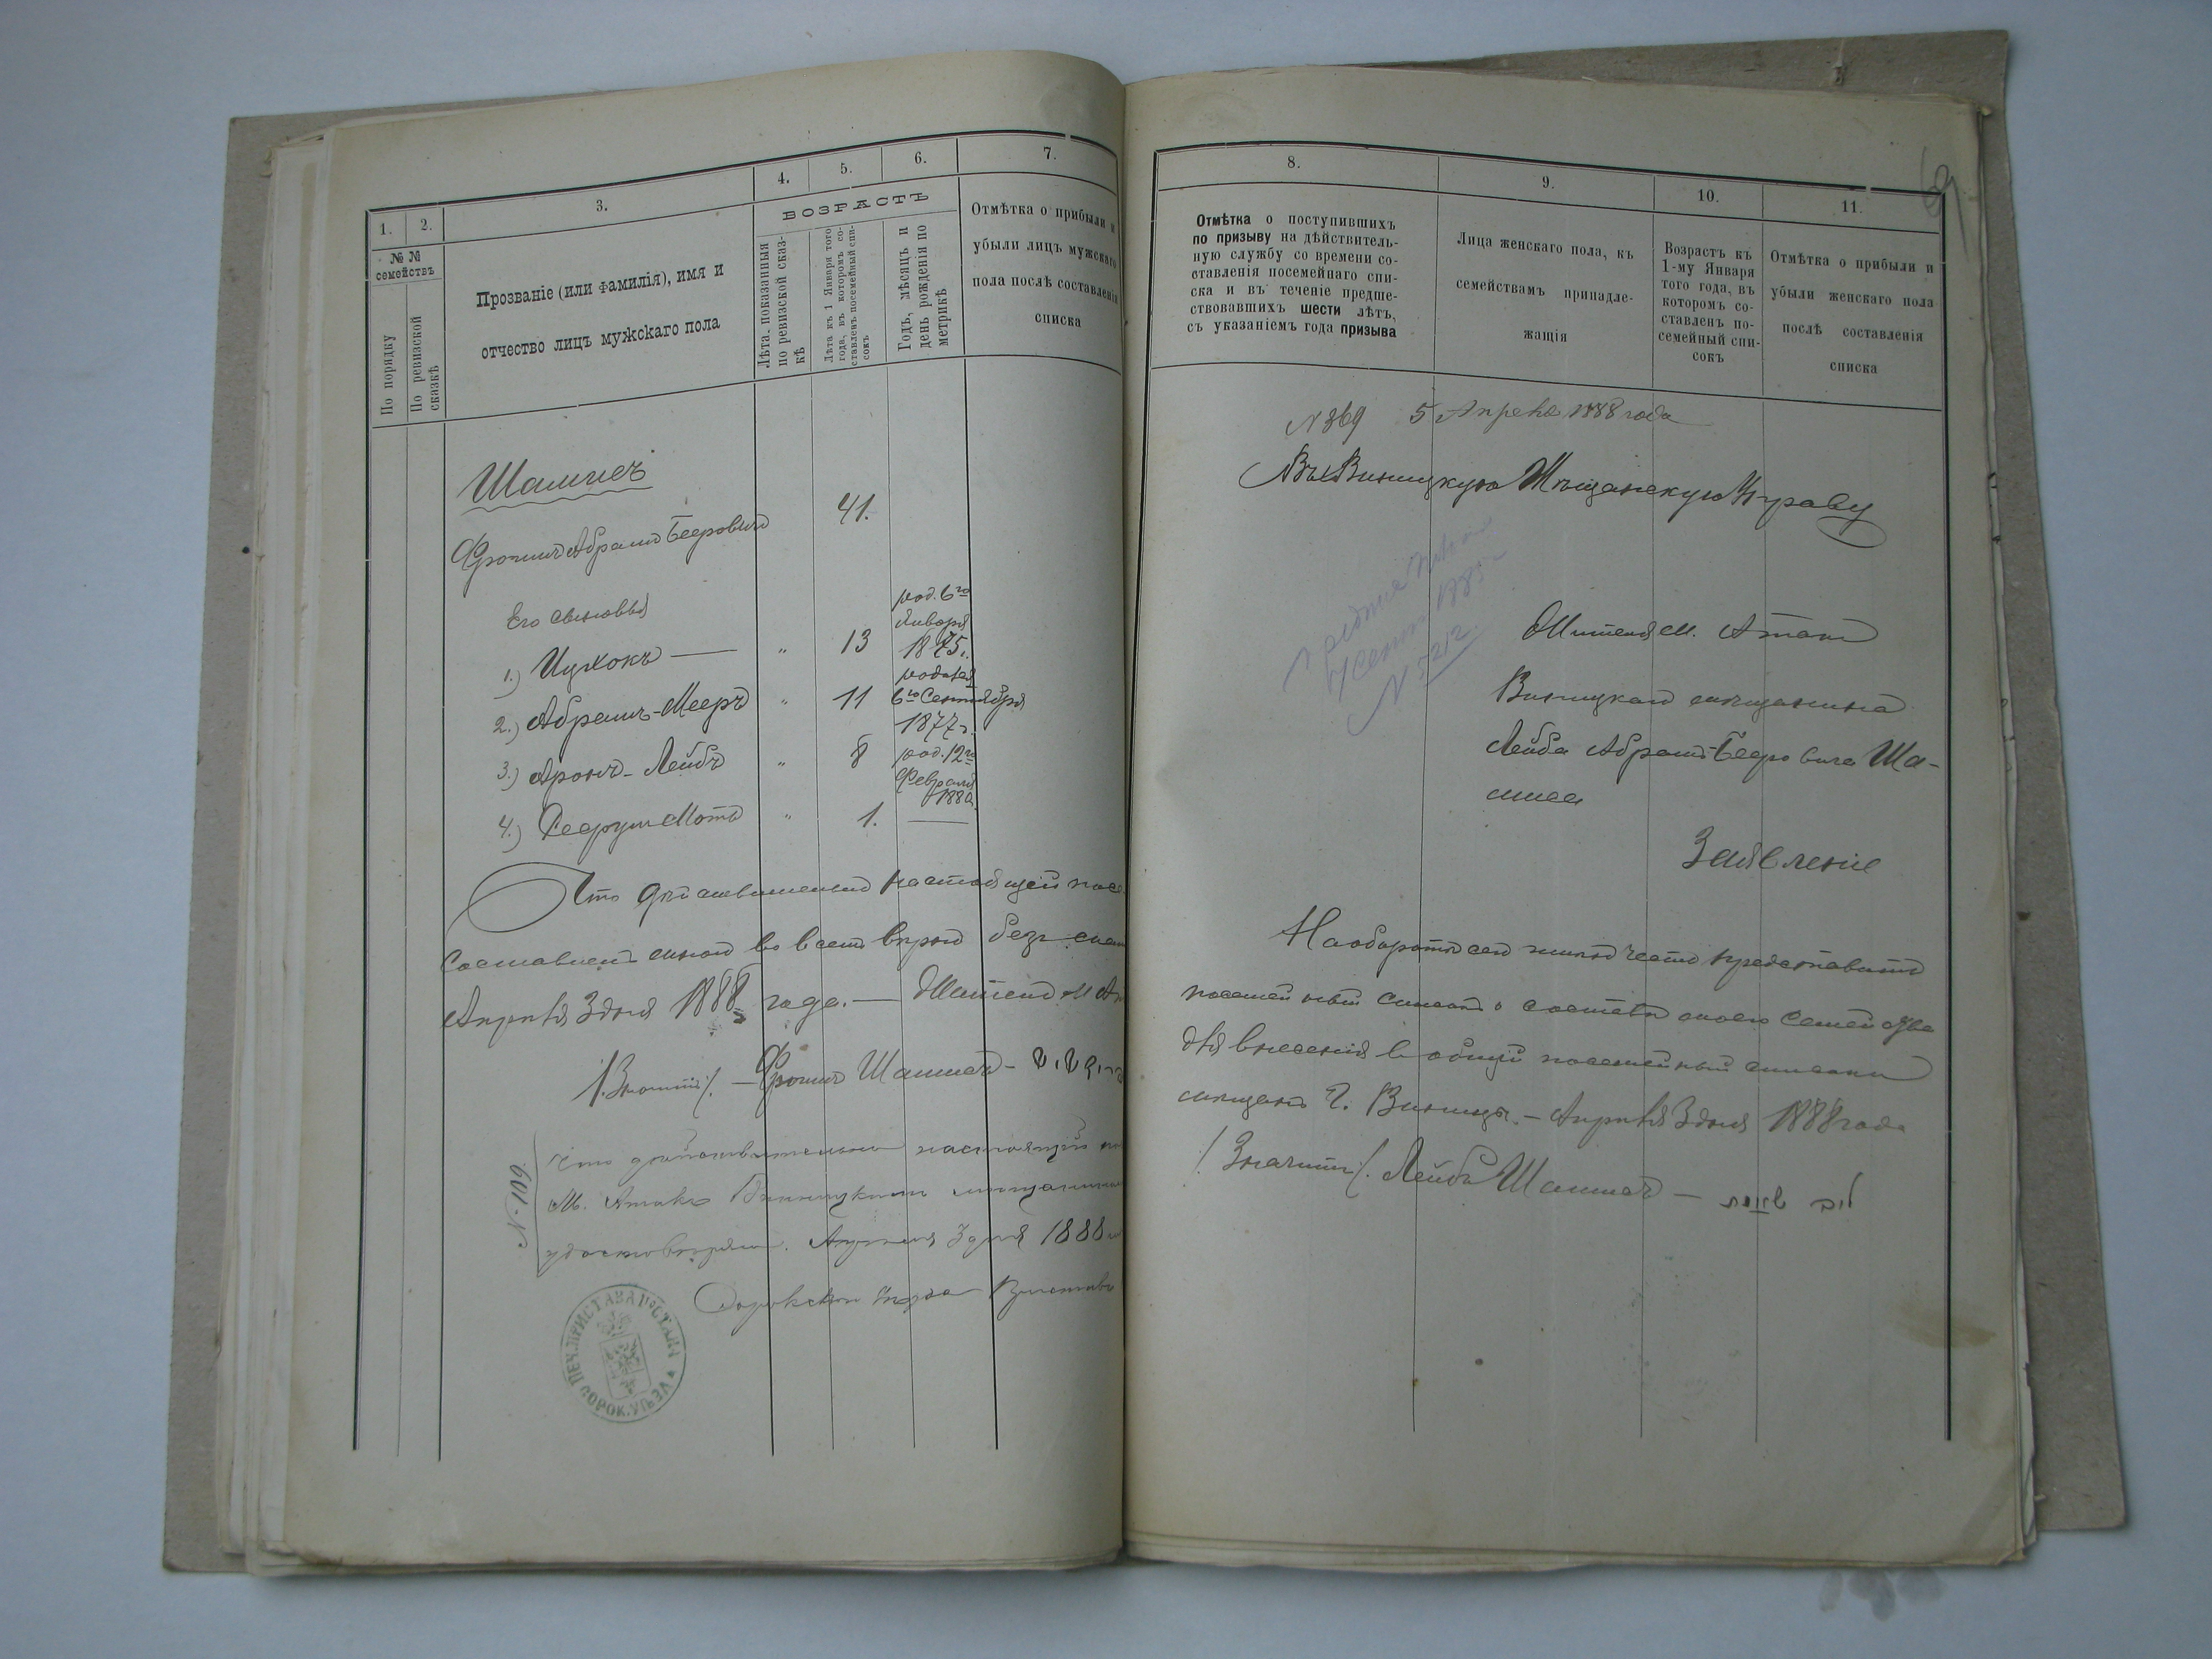 1.
2.
3.
4.
5.
6.
7.
№ №
семействъ
По порядку
По ревизской
сказкѣ
Прозваніе (или фамилія), имя и
отчество лицъ мужскаго пола
ВОЗРАСТЪ
Лѣта, показанныя
по ревизской сказ-
кѣ
Лѣта къ 1 Января того
года, въ которомъ со-
ставленъ посемейный спи-
сокъ
Годъ, мѣсяцъ и
день рожденія по
метрикѣ
Отмѣтка о прибыли и
убыли лицъ мужскаго
пола послѣ составленія
списка
Шамисъ
Фроимъ Абрамъ Бееровичъ 41.
Его сыновья
1.) Ицхокъ — " 13 род. 6го Января 1875 г.
2.) Абрамъ-Мееръ " 11 родился 6го Сентября 1877 г.
3.) Аронъ-Лейбъ " 8 род. 12го Февраля 1880.
4.) Мотъ " 1. —
Что дѣйствительно настоящей посе
Составленъ мною во всемъ вѣрно безъ
Апрѣля 3 дня 1888 года. —
Фроимъ Шамисъ —
Что дѣйствительно настоящій
М. Атакъ Винницкимъ мѣщаниномъ
удостовѣряю. Апрѣля 3 дня 1888
N. 109
Сорокскаго уѣзда Приставъ
ПЕЧ. ПРИСТАВА СТАНА СОРОК. УѢЗДА
8.
9.
10.
11.
Отмѣтка о поступившихъ
по призыву на дѣйствитель-
ную службу со времени со-
ставленія посемейнаго спи-
ска и въ теченіе предше-
ствовавшихъ шести лѣтъ,
съ указаніемъ года призыва
Лица женскаго пола, къ
семействамъ принадле-
жащія
Возрастъ къ
1-му Января
того года, въ
которомъ со-
ставленъ по-
семейный спи-
сокъ
Отмѣтка о прибыли и
убыли женскаго пола
послѣ составленія
списка
N 369 5 Апрѣля 1888 года
Въ Виницкую Мѣщанскую Управу
Жителя м. Атакъ
Виницкаго мѣщанина
Лейба Абрамъ-Бееровича Ша-
миса
Заявленіе
На оборотѣ сего имѣю честь представить
посемейный списокъ о составѣ моего Семейства
для внесенія въ общій посемейный списокъ
мѣщанъ г. Виницы. — Апрѣля 3 дня 1888 года
Лейба Шамисъ —